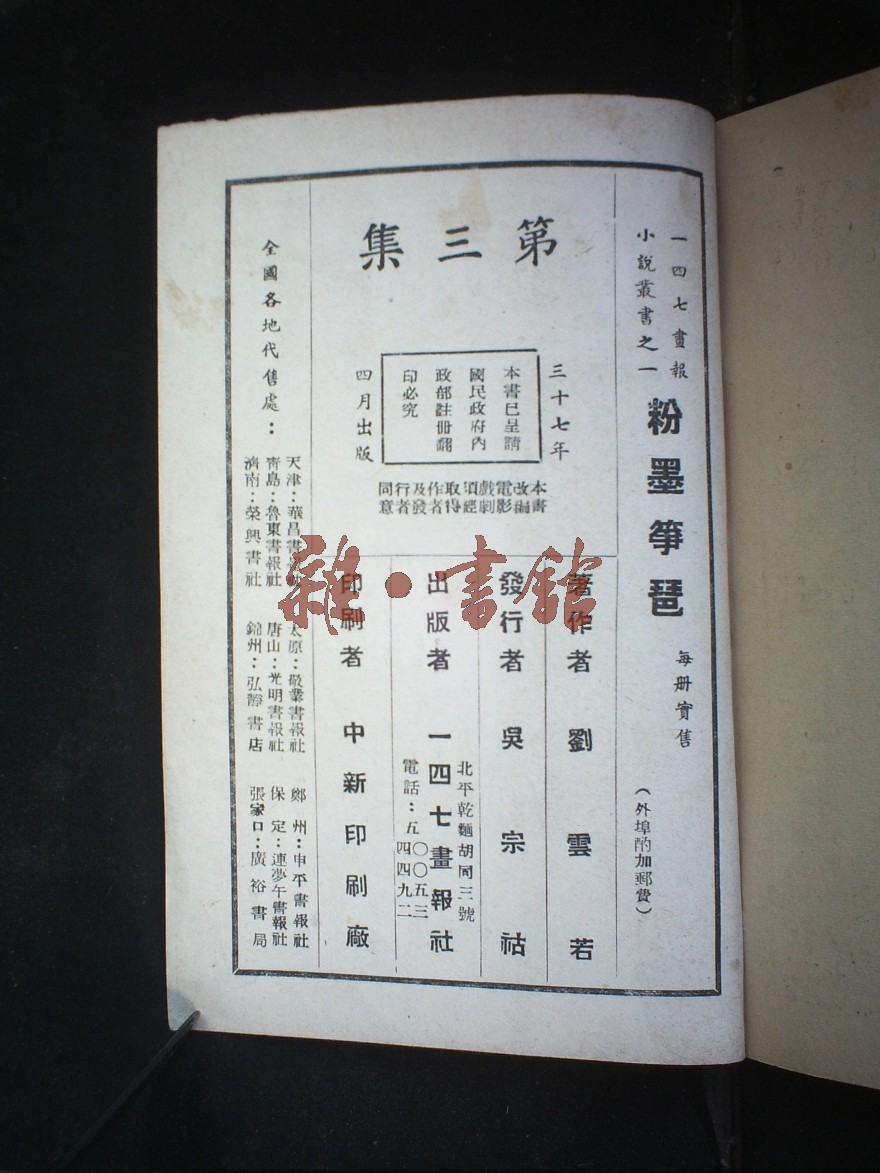 一四七畫報
小說叢書之一
粉墨箏琶
每册實售
（外埠酌加郵費）
第三集
三十七年
四月出版
本書已呈請
國民政府內
政部註册翻
印必究
本書
改編
電影
戲劇
須經
取得
作者
及發
行者
同意
著作者 劉雲若
發行者 吳宗祜
出版者 一四七畫報社
北平乾麵胡同三號
電話：五〇〇五三
四四九二
印刷者 中新印刷廠
全國各地代售處：
天津：華昌書報社
青島：魯東書報社
濟南：榮興書社
太原：敬業書報社
唐山：光明書報社
錦州：弘靜書店
鄭州：申平書報社
保定：連夢午書報社
張家口：廣裕書局
雜·書館